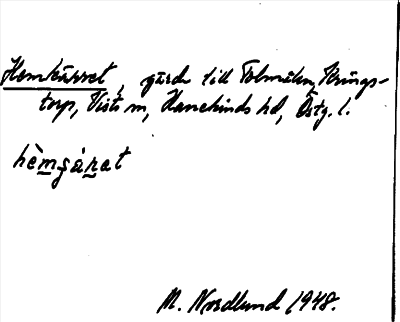 Hemkärret, gärde till Tolmilen, Brings-
torp, Vist sn, Hanekinds hd, Östg. l.
hèmşár̲at
M. Nordlund 1948.